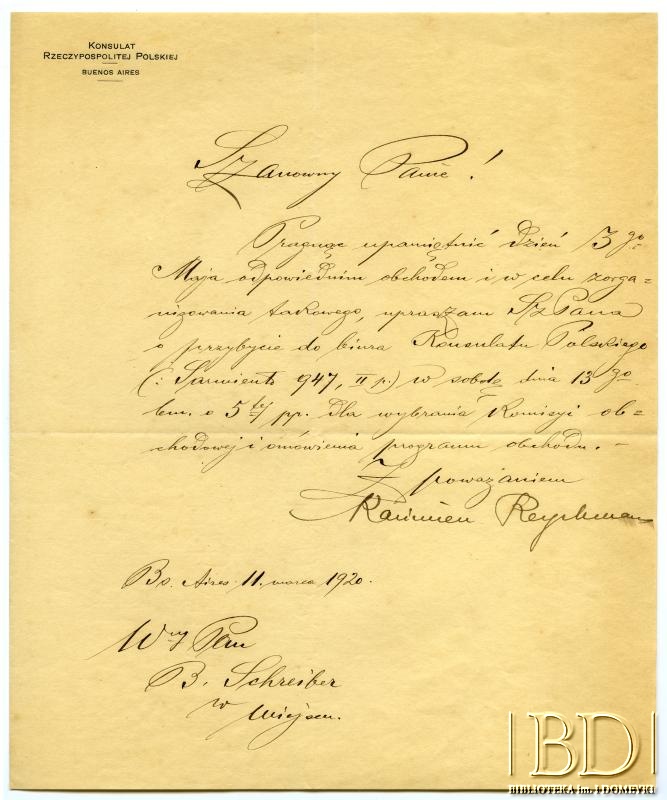 KONSULAT
RZECZYPOSPOLITEJ POLSKIEJ
BUENOS AIRES
Szanowny Panie!
Pragnąc upamiętnić dzień 3 go
Maja odpowiednim obchodem i w celu zorga-
nizowania takowego, upraszam Sz Pana
o przybycie do biura Konsulatu Polskiego
(: Sarmiento 947, II p.) w sobotę dnia 13 go
bm. o 5 tej pp. dla wybrania Komisyi ob-
chodowej i omówienia programu obchodu. –
Z poważaniem
Kazimierz Reychman
Bs. Aires 11. marca 1920.
Wny Pan
B. Schreiber
w miejscu.
IBDI
BIBLIOTEKA im. I DOMEYKI